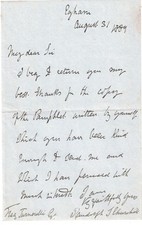 Egham
August 31 1889
My dear Sir
I beg to return you my
best thanks for the copy
of the Pamphlet written by yourself
which you have been kind
enough to send me and
which I have perused with
much interest
I am
Yours
Randolph S Churchill